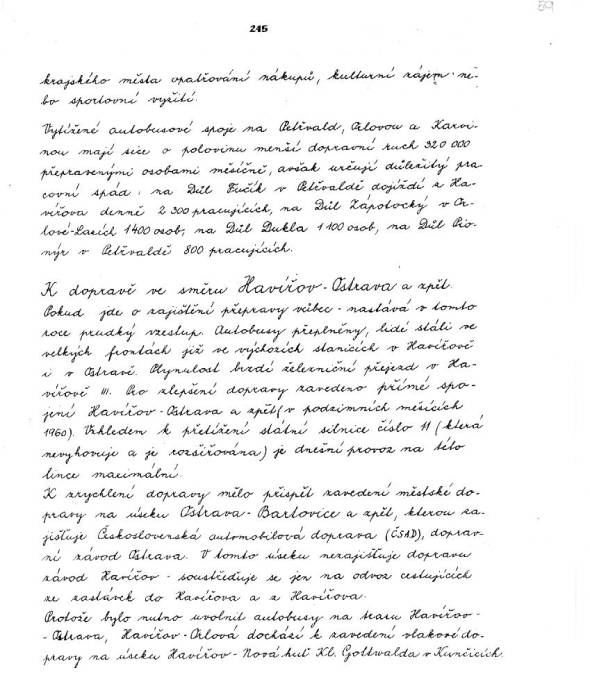 59
245
krajského města opatřování nákupů, kulturní zájem ne-
bo sportovní vyžití.
Vytížené autobusové spoje na Petřvald, Orlovou a Karvi-
nou mají sice o polovinu menší dopravní ruch 320 000
přepravenými osobami měsíčně, avšak určují důležitý pra-
covní spád: na Důl Fučík v Petřvaldě dojíždí z Ha-
vířova denně 2 300 pracujících, na Důl Zápotocký v Or-
lové-Lazích 1400 osob, na Důl Dukla 1 100 osob, na Důl Pio-
nýr v Petřvaldě 800 pracujících.
K dopravě ve směru Havířov-Ostrava a zpět.
Pokud jde o zajištění přepravy vůbec - nastává v tomto
roce prudký vzestup. Autobusy přeplněny, lidé stáli ve
velkých frontách již ve výchozích stanicích v Havířově
i v Ostravě. Plynulost brzdí železniční přejezd v Ha-
vířově III. Pro zlepšení dopravy zavedeno přímé spo-
jení Havířov-Ostrava a zpět (v podzimních měsících
1960). Vzhledem k přetížení státní silnice číslo 11 (která
nevyhovuje a je rozšiřována) je dnešní provoz na této
lince maximální.
K zrychlení dopravy mělo přispět zavedení městské do-
pravy na úseku Ostrava-Bartovice a zpět, kterou za-
jišťuje Československá automobilová doprava (ČSAD), doprav-
ní závod Ostrava. V tomto úseku nezajišťuje dopravu
závod Havířov - soustřeďuje se jen na odvoz cestujících
ze zastávek do Havířova a z Havířova.
Protože bylo nutno uvolnit autobusy na trasu Havířov-
-Ostrava, Havířov-Orlová dochází k zavedení vlakové do-
pravy na úseku Havířov-Nová huť Kl. Gottwalda v Kunčicích.